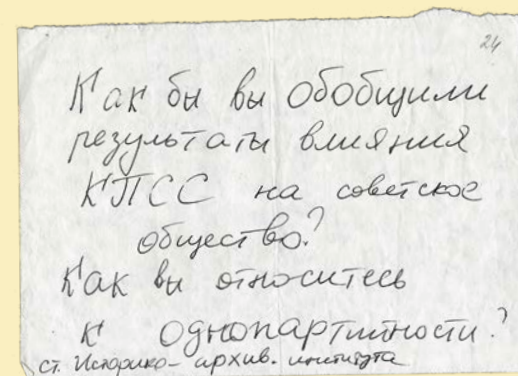 24
Как бы вы обобщили
результаты влияния
КПСС на советское
общество?
Как вы относитесь
к однопартийности?
ст. Историко-архив. института